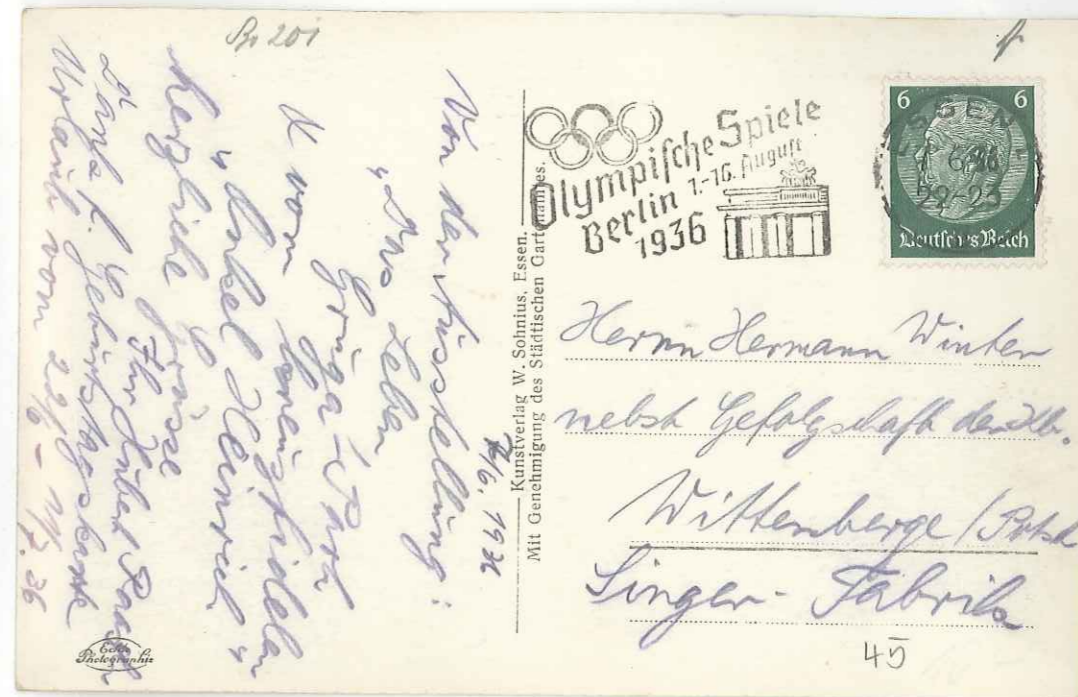 Br 201
Von der Ausstellung:
„Das Leben"
Gruga-Park
vom kreuzfidelen
„Onkel Heinrich"
herzliche Grüsse
Ihr
Dank f. Geburtstagskarte
Urlaub vom 22/6 – 11/7.36
Echte
Photographie
/6. 1936
Kunstverlag W. Sohnius, Essen.
Mit Genehmigung des Städtischen Gartenamtes.
Olympische Spiele
Berlin 1.-16. August
1936
6 6
ESSEN
22-23
Deutsches Reich
Herrn Hermann Winter
nebst Gefolgschaft
Wittenberge / Potsd
Singer-Fabrik
45